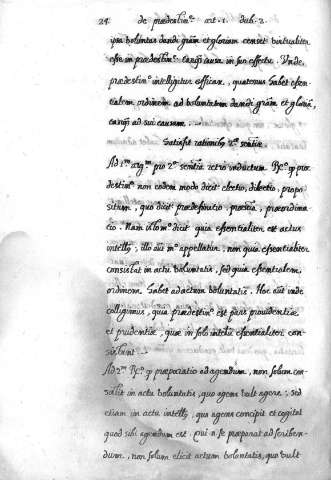 24. de praedestin.e art. 1. dub. 2.
ipsa voluntas dandi grãm et gloriam censet virtualiter
esse in praedestin.e tanq̃ causa in suo effectu. Unde
praedestin.o intelligitur efficax, quatenus habet essen-
tialem ordinem ad voluntatem dandi grãm et gloriã,
tanq̃ ad sui causam.
Satisfit rationibq 2.ae sententiae.
Ad 1.m arg.m pro 2.a sententia retro inductum Rx.o q̃ prae
destin.o non eodem modo dicit electio, dilectio, propo
situm, quo dicit praedefinitio, praescia, praeordina
tio. Nam illo m.o dicit quia essentialiter est actus
intellq; illo aut m.o appellatur, non quia essentialiter
consistat in actu voluntatis, sed quia essentialem
ordinem habet ad actum voluntatis. Hoc aut unde
colligimus, quia praedestin.o est pars providentiae
et prudentiae, quae in solo intellu essentialiter con
sistunt.
Ad 2.m Rx.o q̃ praeparatio ad agendum, non solum con
sistit in actu voluntatis, quo agens vult agere; sed
etiam in actu intellq, quo agens concipit et cogitat
quod sibi agendum est. Qui n. se praeparat ad scriben-
dum, non solum elicit actum voluntatis, quo vult